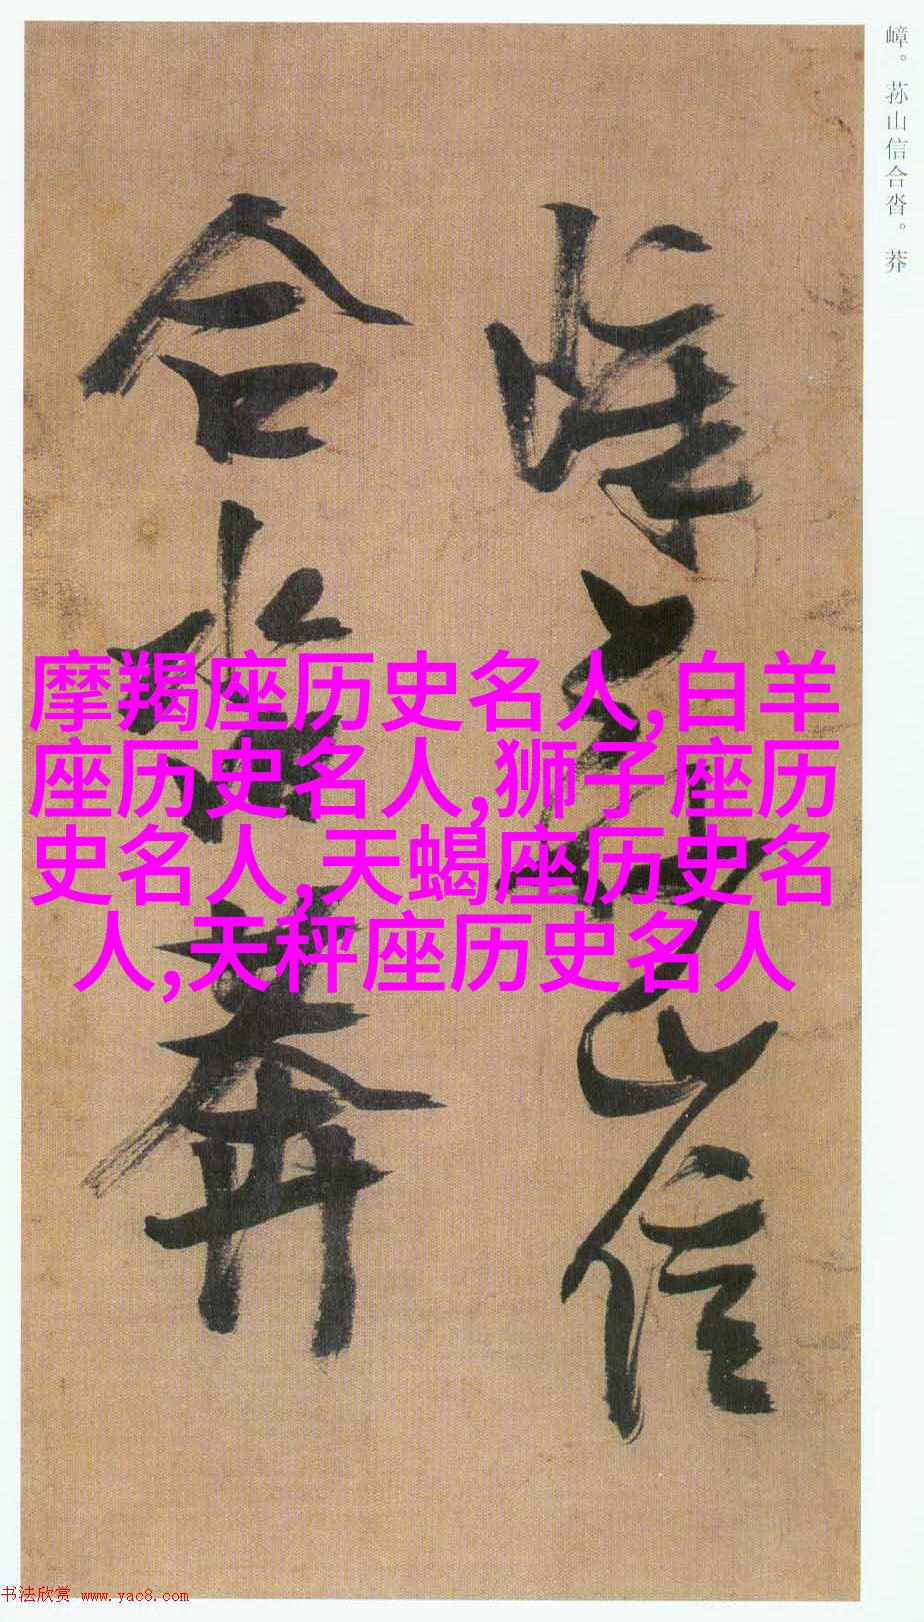 嶂。荪山信合沓。莽
嶂荪山信
合沓莽
摩羯座历史名人,白羊
座历史名人,狮子座历
史名人,天蝎座历史名
人,天秤座历史名人
书法欣赏 www.yac8.com